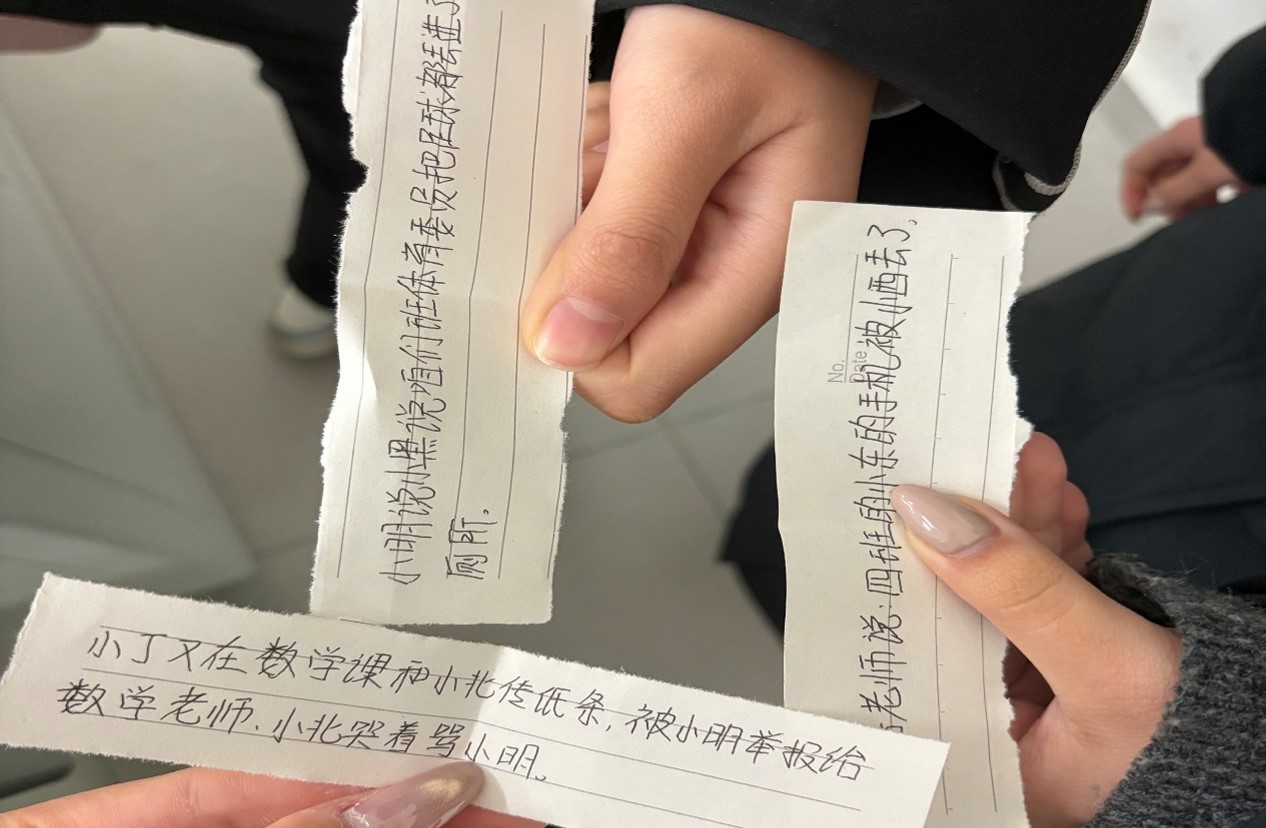 小明说小黑说咱们班体育委员把足球都丢进了
厕所。
No.
Date
老师说:四班的小东的手机被小西丢了。
小丁又在数学课和小北传纸条,被小明举报给
数学老师、小北哭着骂小明。